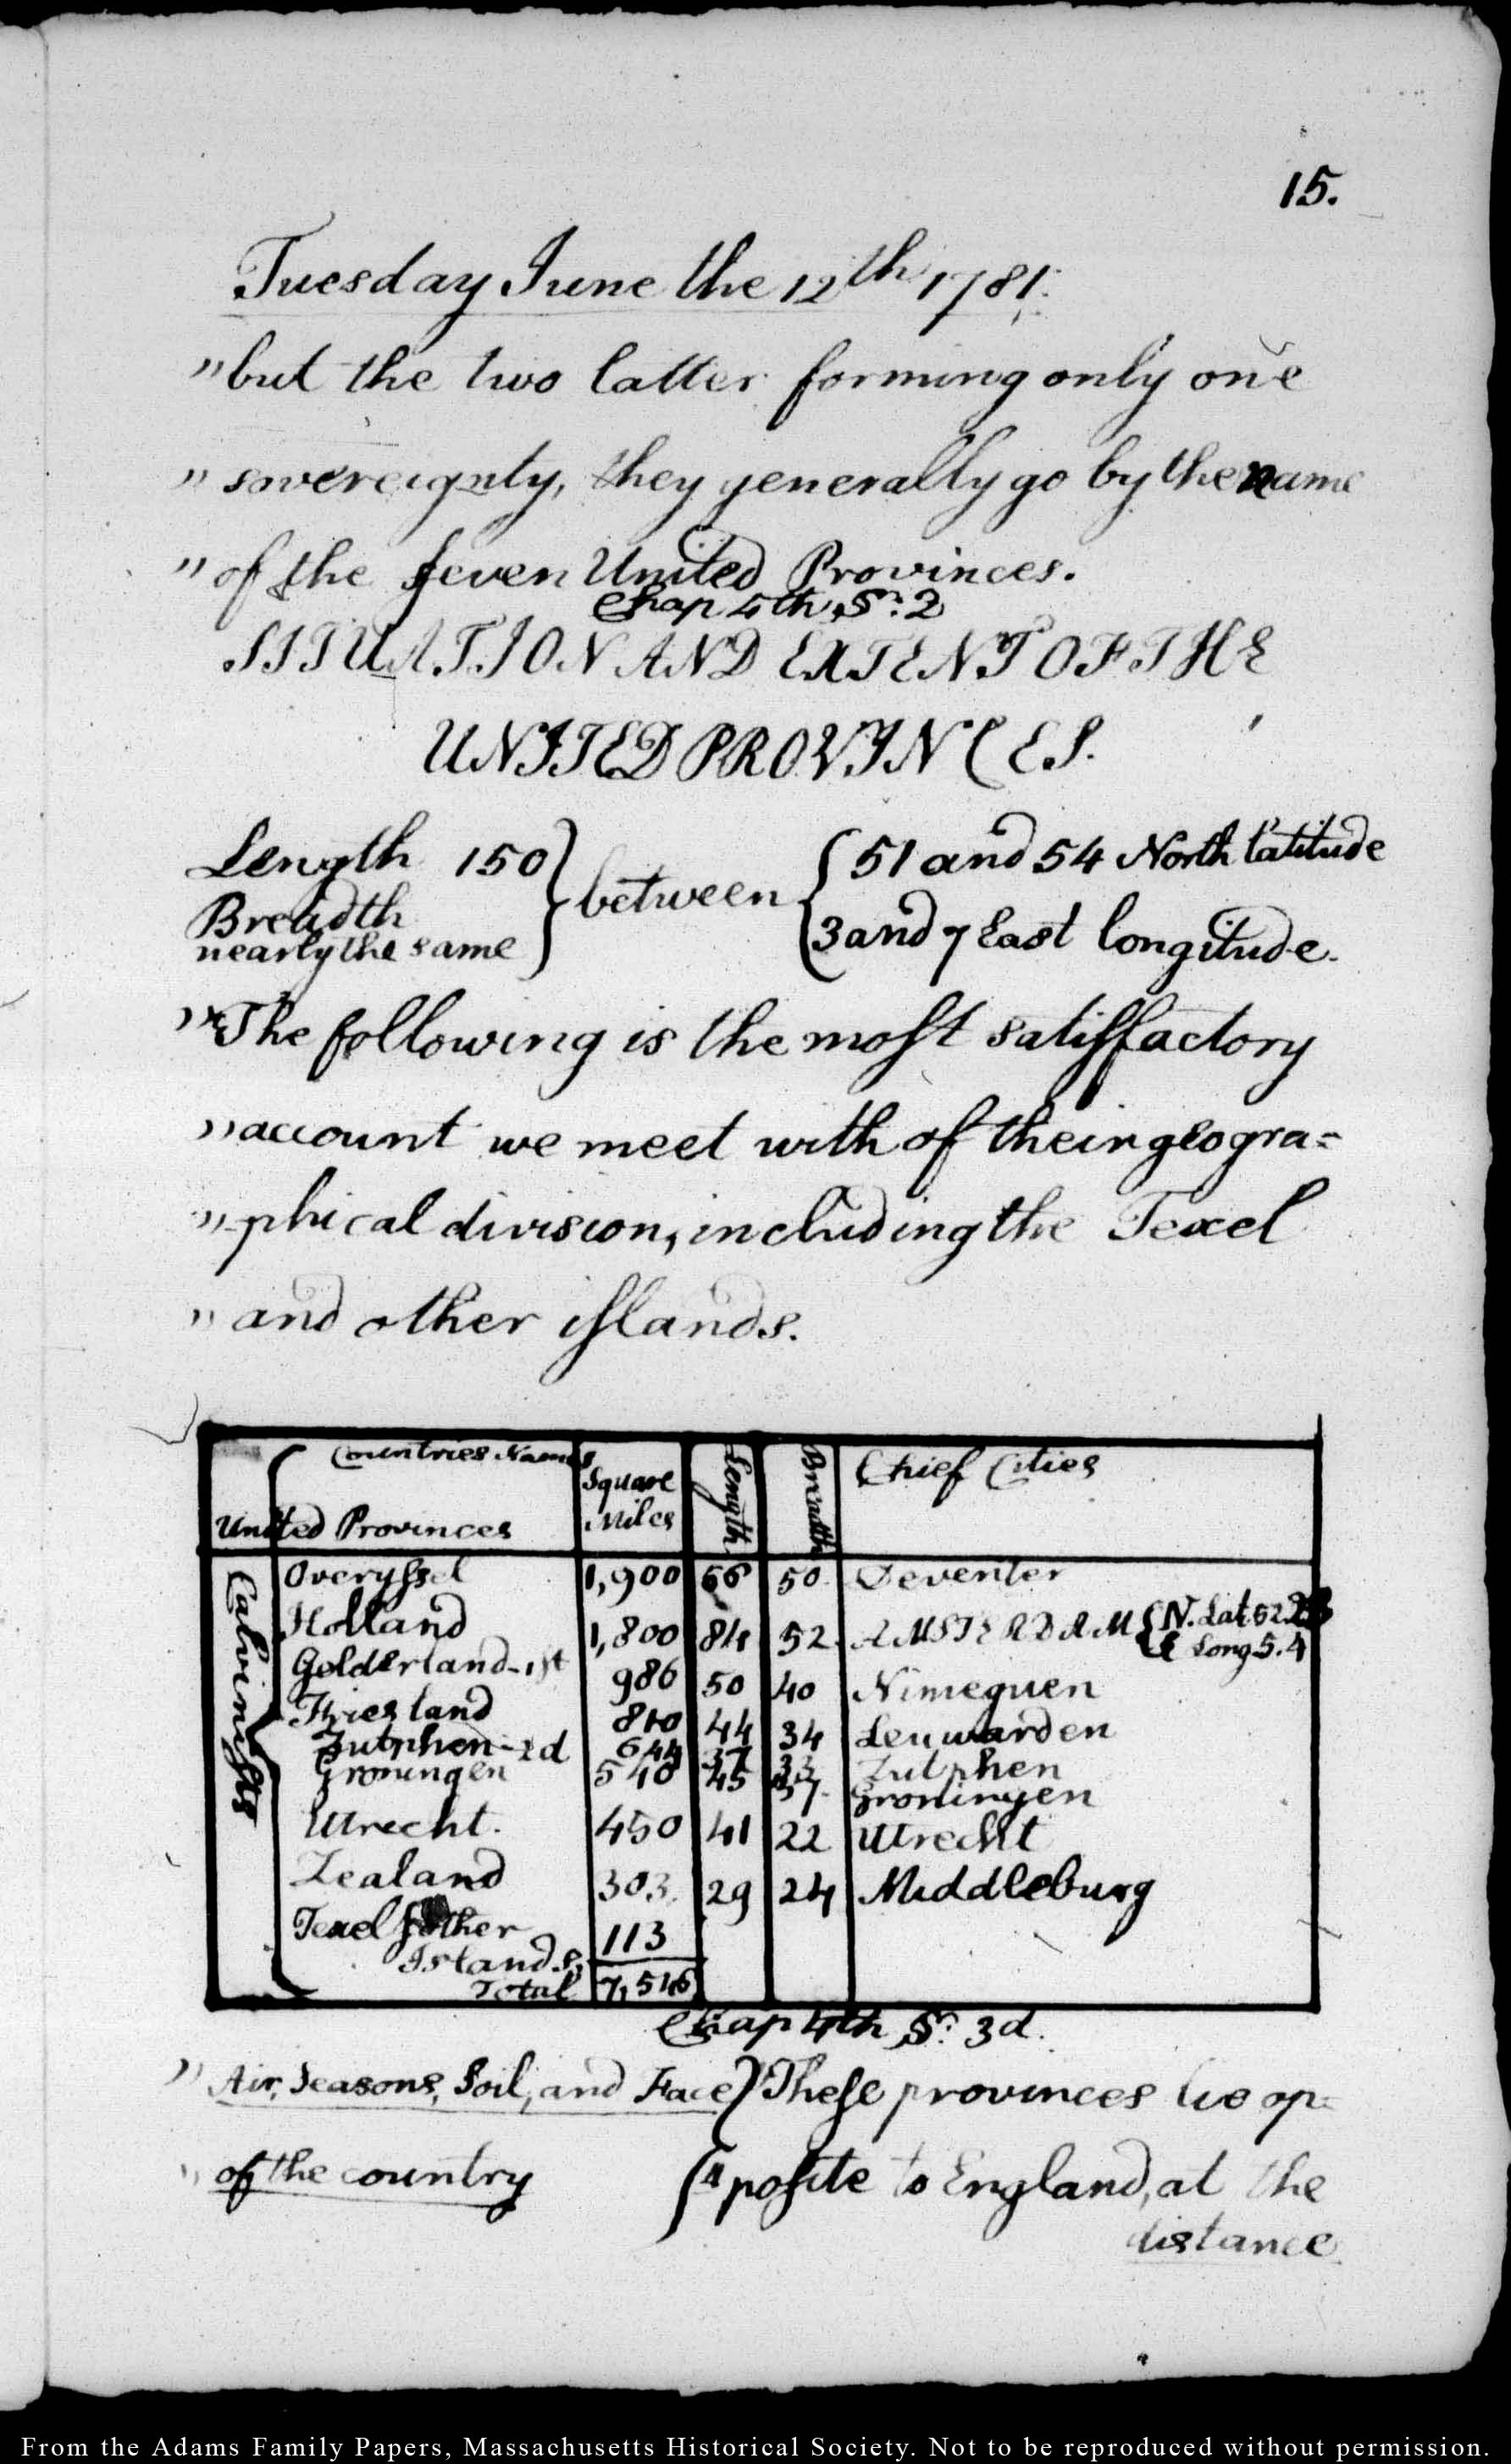 15.
Tuesday June the 12th 1781.
"but the two latter forming only one
"sovereignty, they generally go by the name
"of the seven United Provinces.
Chap 4th, Sn: 2
SITUATION AND EXTENT OF THE
UNITED PROVINCES.
Length 150 } between { 51 and 54 North latitude
Breadth
nearly the same } { 3 and 7 East longitude.
"The following is the most satisfactory
"account we meet with of their geogra=
"phical division, including the Texel
"and other islands.
Countries Names Square Miles Length Breadth Chief Cities
United Provinces
Calvinists
Overyssel 1,900 66 50 Deventer
Holland 1,800 84 52 AMSTERDAM { N. Lat. 52.
E Long 5.4
Gelderland-1st 986 50 40 Nimeguen
Friesland 810 44 34 Leuwarden
Zutphen-2d 644 37 33 Zutphen
Groningen 540 45 37 Groningen
Utrecht. 450 41 22 Utrecht
Zealand 303 29 24 Middleburg
Texel & other
Islands, 113
Total 7,546
Chap 4th Sn: 3d.
"Air, Seasons, Soil, and Face } These provinces lie op=
"of the country { "posite to England, at the
distance
From the Adams Family Papers, Massachusetts Historical Society. Not to be reproduced without permission.